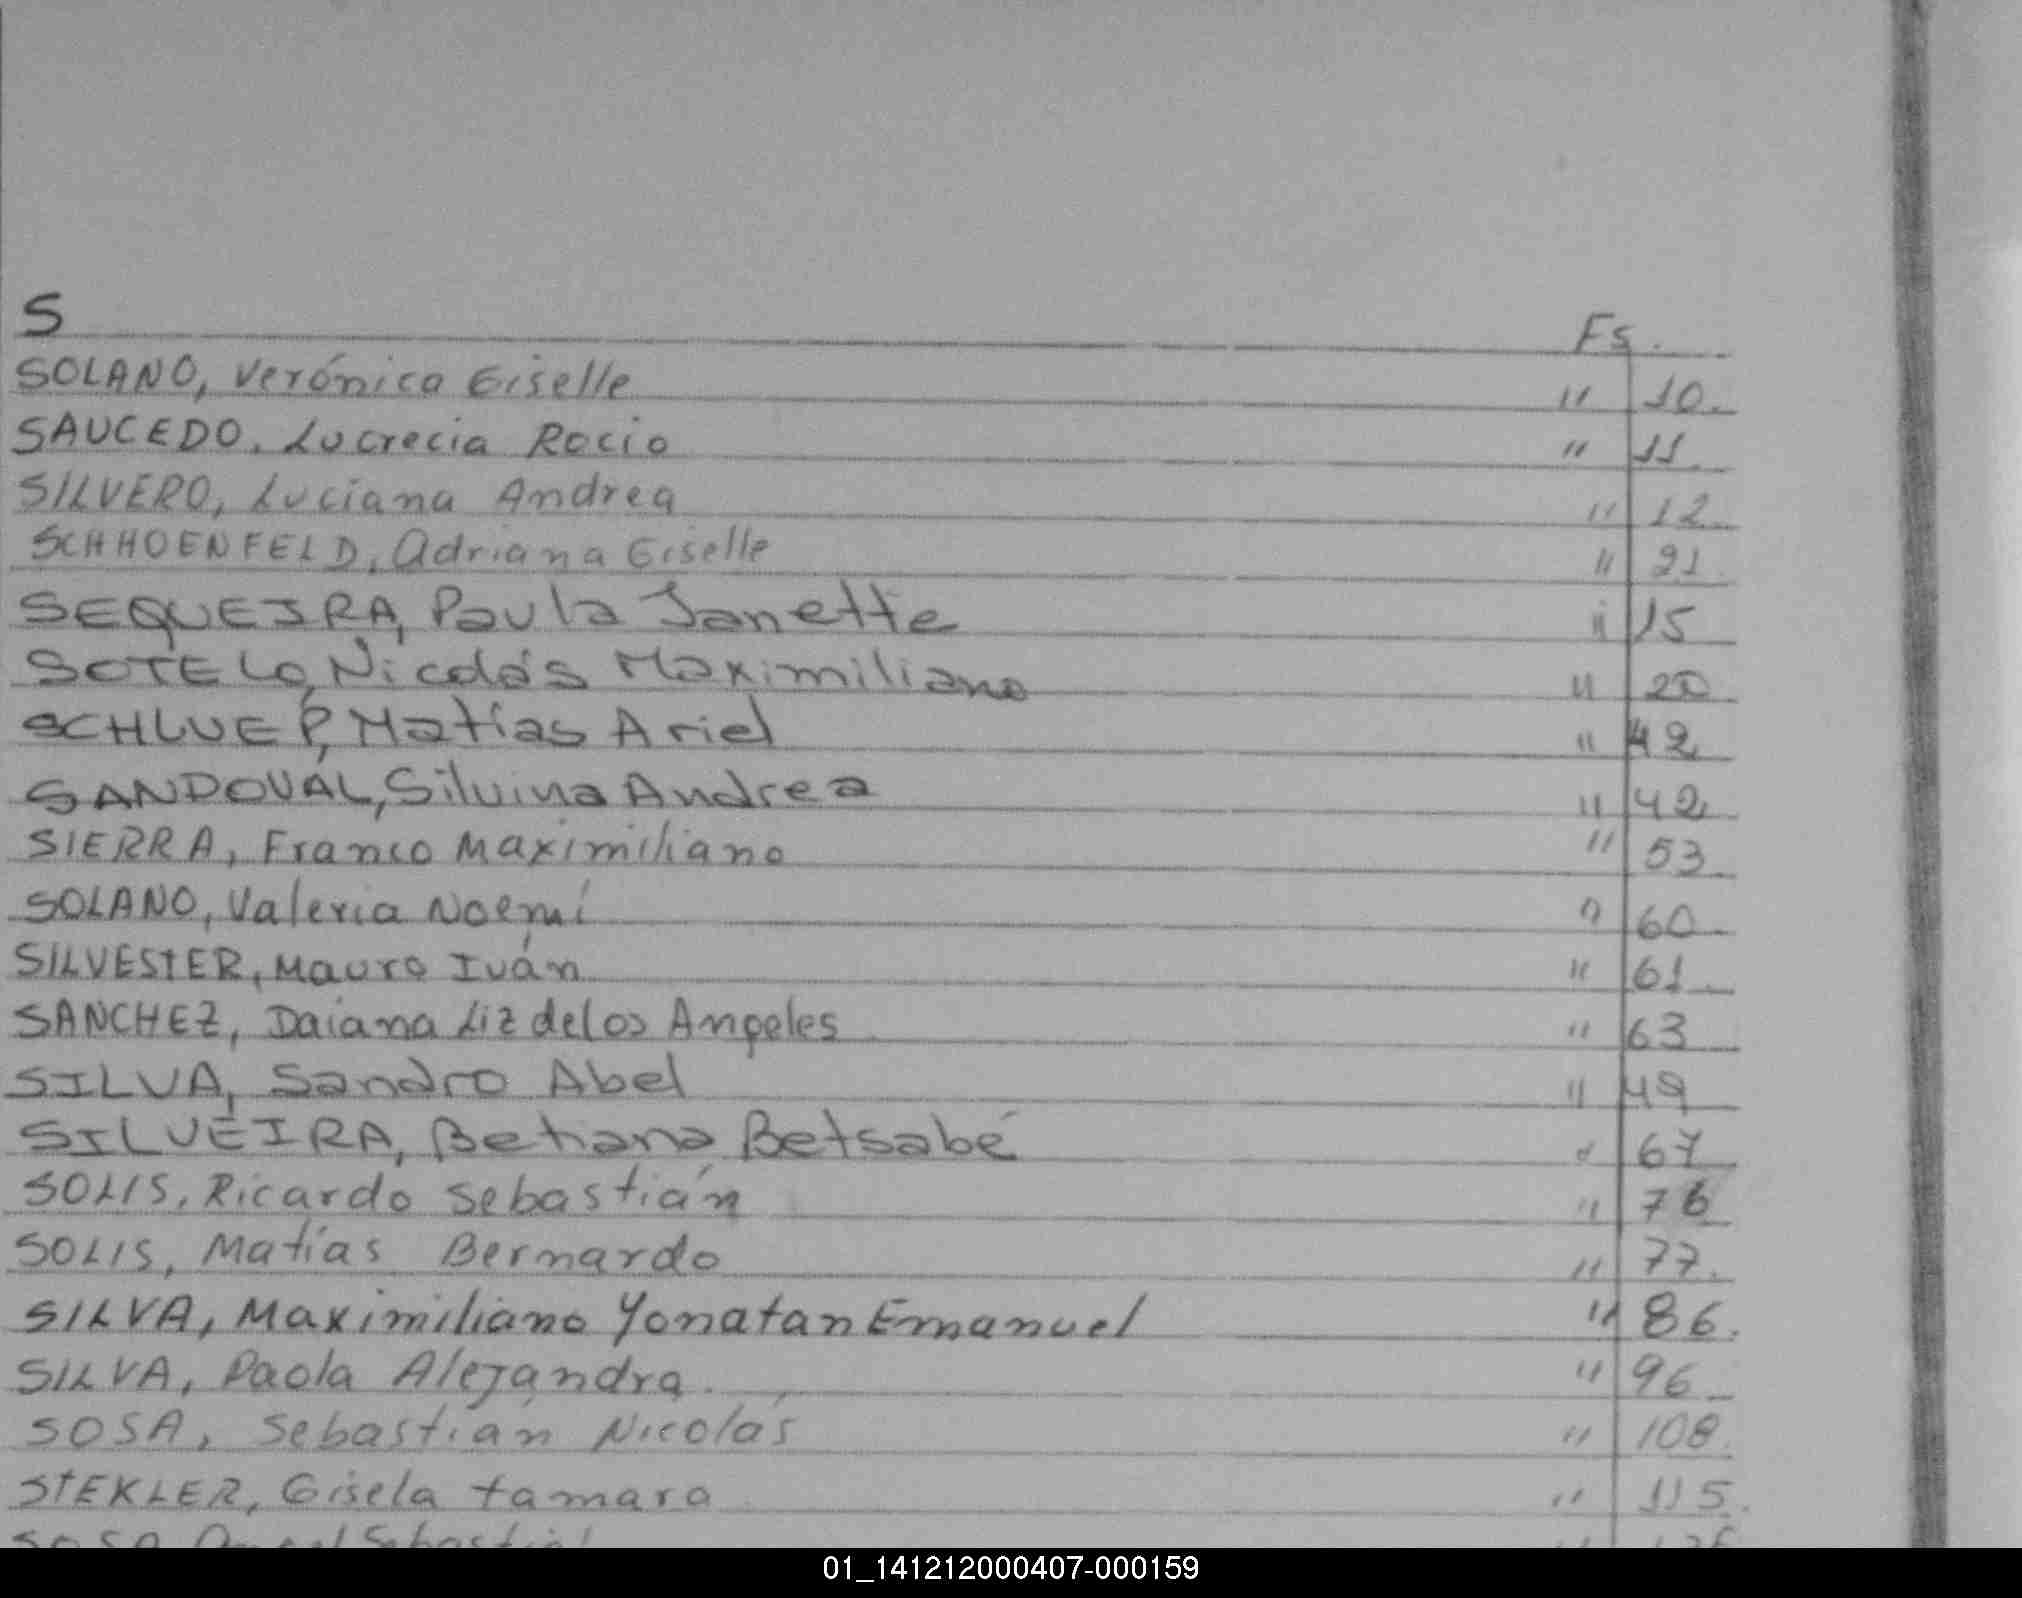 S Fs.
SOLANO, Verónica Giselle " 10.
SAUCEDO, Lucrecia Rocio " 11
SILVERO, Luciana Andrea " 12
SCHHOENFELD, Adriana Giselle " 21.
SEQUEIRA, Paula Janette " 15
SOTELO, Nicolás Maximiliano " 20
SCHLUEP, Matías Ariel " 42
SANDOVAL, Silvina Andrea " 42
SIERRA, Franco Maximiliano " 53
SOLANO, Valeria Noemí " 60
SILVESTER, Mauro Iván " 61
SANCHEZ, Daiana Liz de los Angeles " 63
SILVA, Sandro Abel " 49
SILVEIRA, Betiana Betsabé " 67
SOLIS, Ricardo Sebastián " 76
SOLIS, Matías Bernardo " 77.
SILVA, Maximiliano Yonatan Emanuel " 86.
SILVA, Paola Alejandra. " 96
SOSA, Sebastián Nicolás " 108.
STEKLER, Gisela tamara " 115.
SOSA
01_141212000407-000159